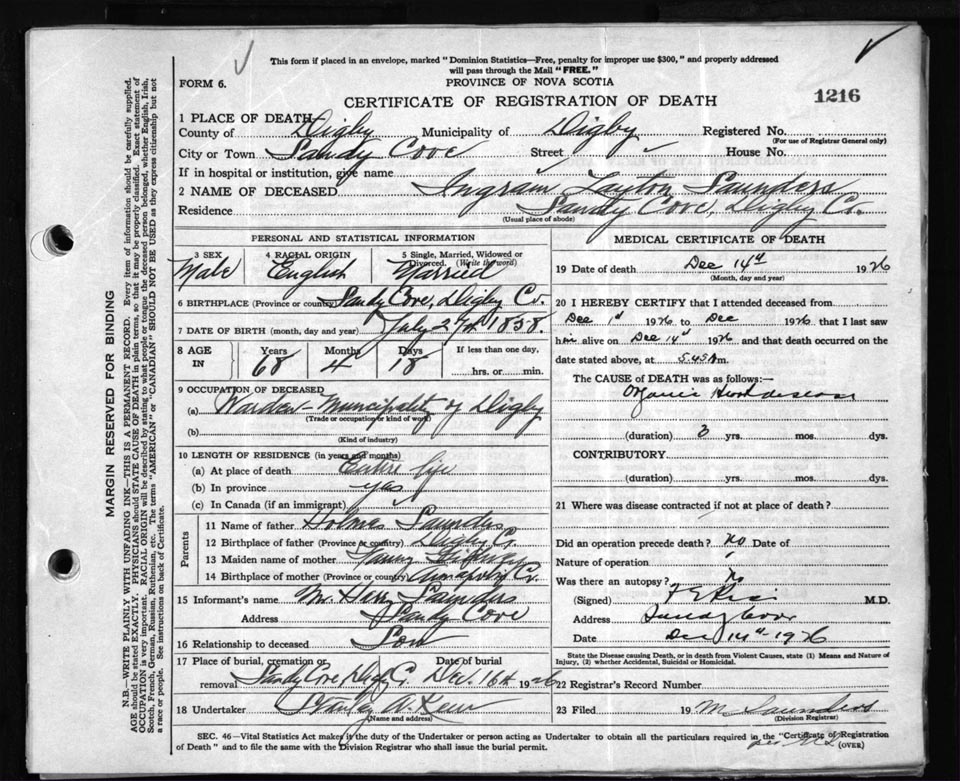 This form if placed in an envelope, marked "Dominion Statistics—Free, penalty for improper use $300," and properly addressed
will pass through the Mail "FREE."
FORM 6.
PROVINCE OF NOVA SCOTIA
CERTIFICATE OF REGISTRATION OF DEATH
1216
1 PLACE OF DEATH
County of Digby Municipality of Digby Registered No.
(For use of Registrar General only)
City or Town Sandy Cove Street House No.
If in hospital or institution, give name
2 NAME OF DECEASED Ingram Layton Saunders
Residence Sandy Cove, Digby Co.
(Usual place of abode)
PERSONAL AND STATISTICAL INFORMATION
3 SEX 4 RACIAL ORIGIN 5 Single, Married, Widowed or Divorced. (Write the word)
Male English Married
6 BIRTHPLACE (Province or country) Sandy Cove, Digby Co.
7 DATE OF BIRTH (month, day and year) July 27th 1858.
8 AGE IN Years Months Days If less than one day,
68 4 18 hrs. or min.
9 OCCUPATION OF DECEASED
(a) Warden - Municipality of Digby
(Trade or occupation or kind of work)
(b)
(Kind of industry)
10 LENGTH OF RESIDENCE (in years and months)
(a) At place of death Entire life
(b) In province yes
(c) In Canada (if an immigrant)
Parents
11 Name of father Holmes Saunders
12 Birthplace of father (Province or country) Digby Co.
13 Maiden name of mother
14 Birthplace of mother (Province or country) Annapolis Co.
15 Informant's name Mr. Saunders
Address Sandy Cove
16 Relationship to deceased Son
17 Place of burial, cremation or removal Date of burial
Sandy Cove, Digby Co. Dec. 16th 1926
18 Undertaker Stanley A.
(Name and address)
MEDICAL CERTIFICATE OF DEATH
19 Date of death Dec 14th 1926
(Month, day and year)
20 I HEREBY CERTIFY that I attended deceased from
Dec 1st 1926 to Dec 1926 that I last saw
him alive on Dec 14th 1926 and that death occurred on the
date stated above, at 5.45 m.
The CAUSE of DEATH was as follows:—
Organic Heart disease
(duration) 3 yrs. mos. dys.
CONTRIBUTORY
(duration) yrs. mos. dys.
21 Where was disease contracted if not at place of death?
Did an operation precede death? no Date of
Nature of operation
Was there an autopsy? No
(Signed) M.D.
Address Sandy Cove
Date Dec 14th 1926
State the Disease causing Death, or in death from Violent Causes, state (1) Means and Nature of
Injury, (2) whether Accidental, Suicidal or Homicidal.
22 Registrar's Record Number
23 Filed 19 M Saunders
(Division Registrar)
per
SEC. 46—Vital Statistics Act makes it the duty of the Undertaker or person acting as Undertaker to obtain all the particulars required in the "Certificate of Registration
of Death" and to file the same with the Division Registrar who shall issue the burial permit. (OVER)
MARGIN RESERVED FOR BINDING
N.B.—WRITE PLAINLY WITH UNFADING INK—THIS IS A PERMANENT RECORD. Every item of information should be carefully supplied.
AGE should be stated EXACTLY. PHYSICIANS should STATE CAUSE OF DEATH in plain terms, so that it may be properly classified. Exact statement of
OCCUPATION is very important. RACIAL ORIGIN will be described by stating to what people or tongue the deceased person belonged, whether English, Irish,
Scotch, French, German, Russian, Ruthenian, etc. The terms "AMERICAN" or "CANADIAN" SHOULD NOT BE USED as they express citizenship but not
a race or people. See instructions on back of Certificate.